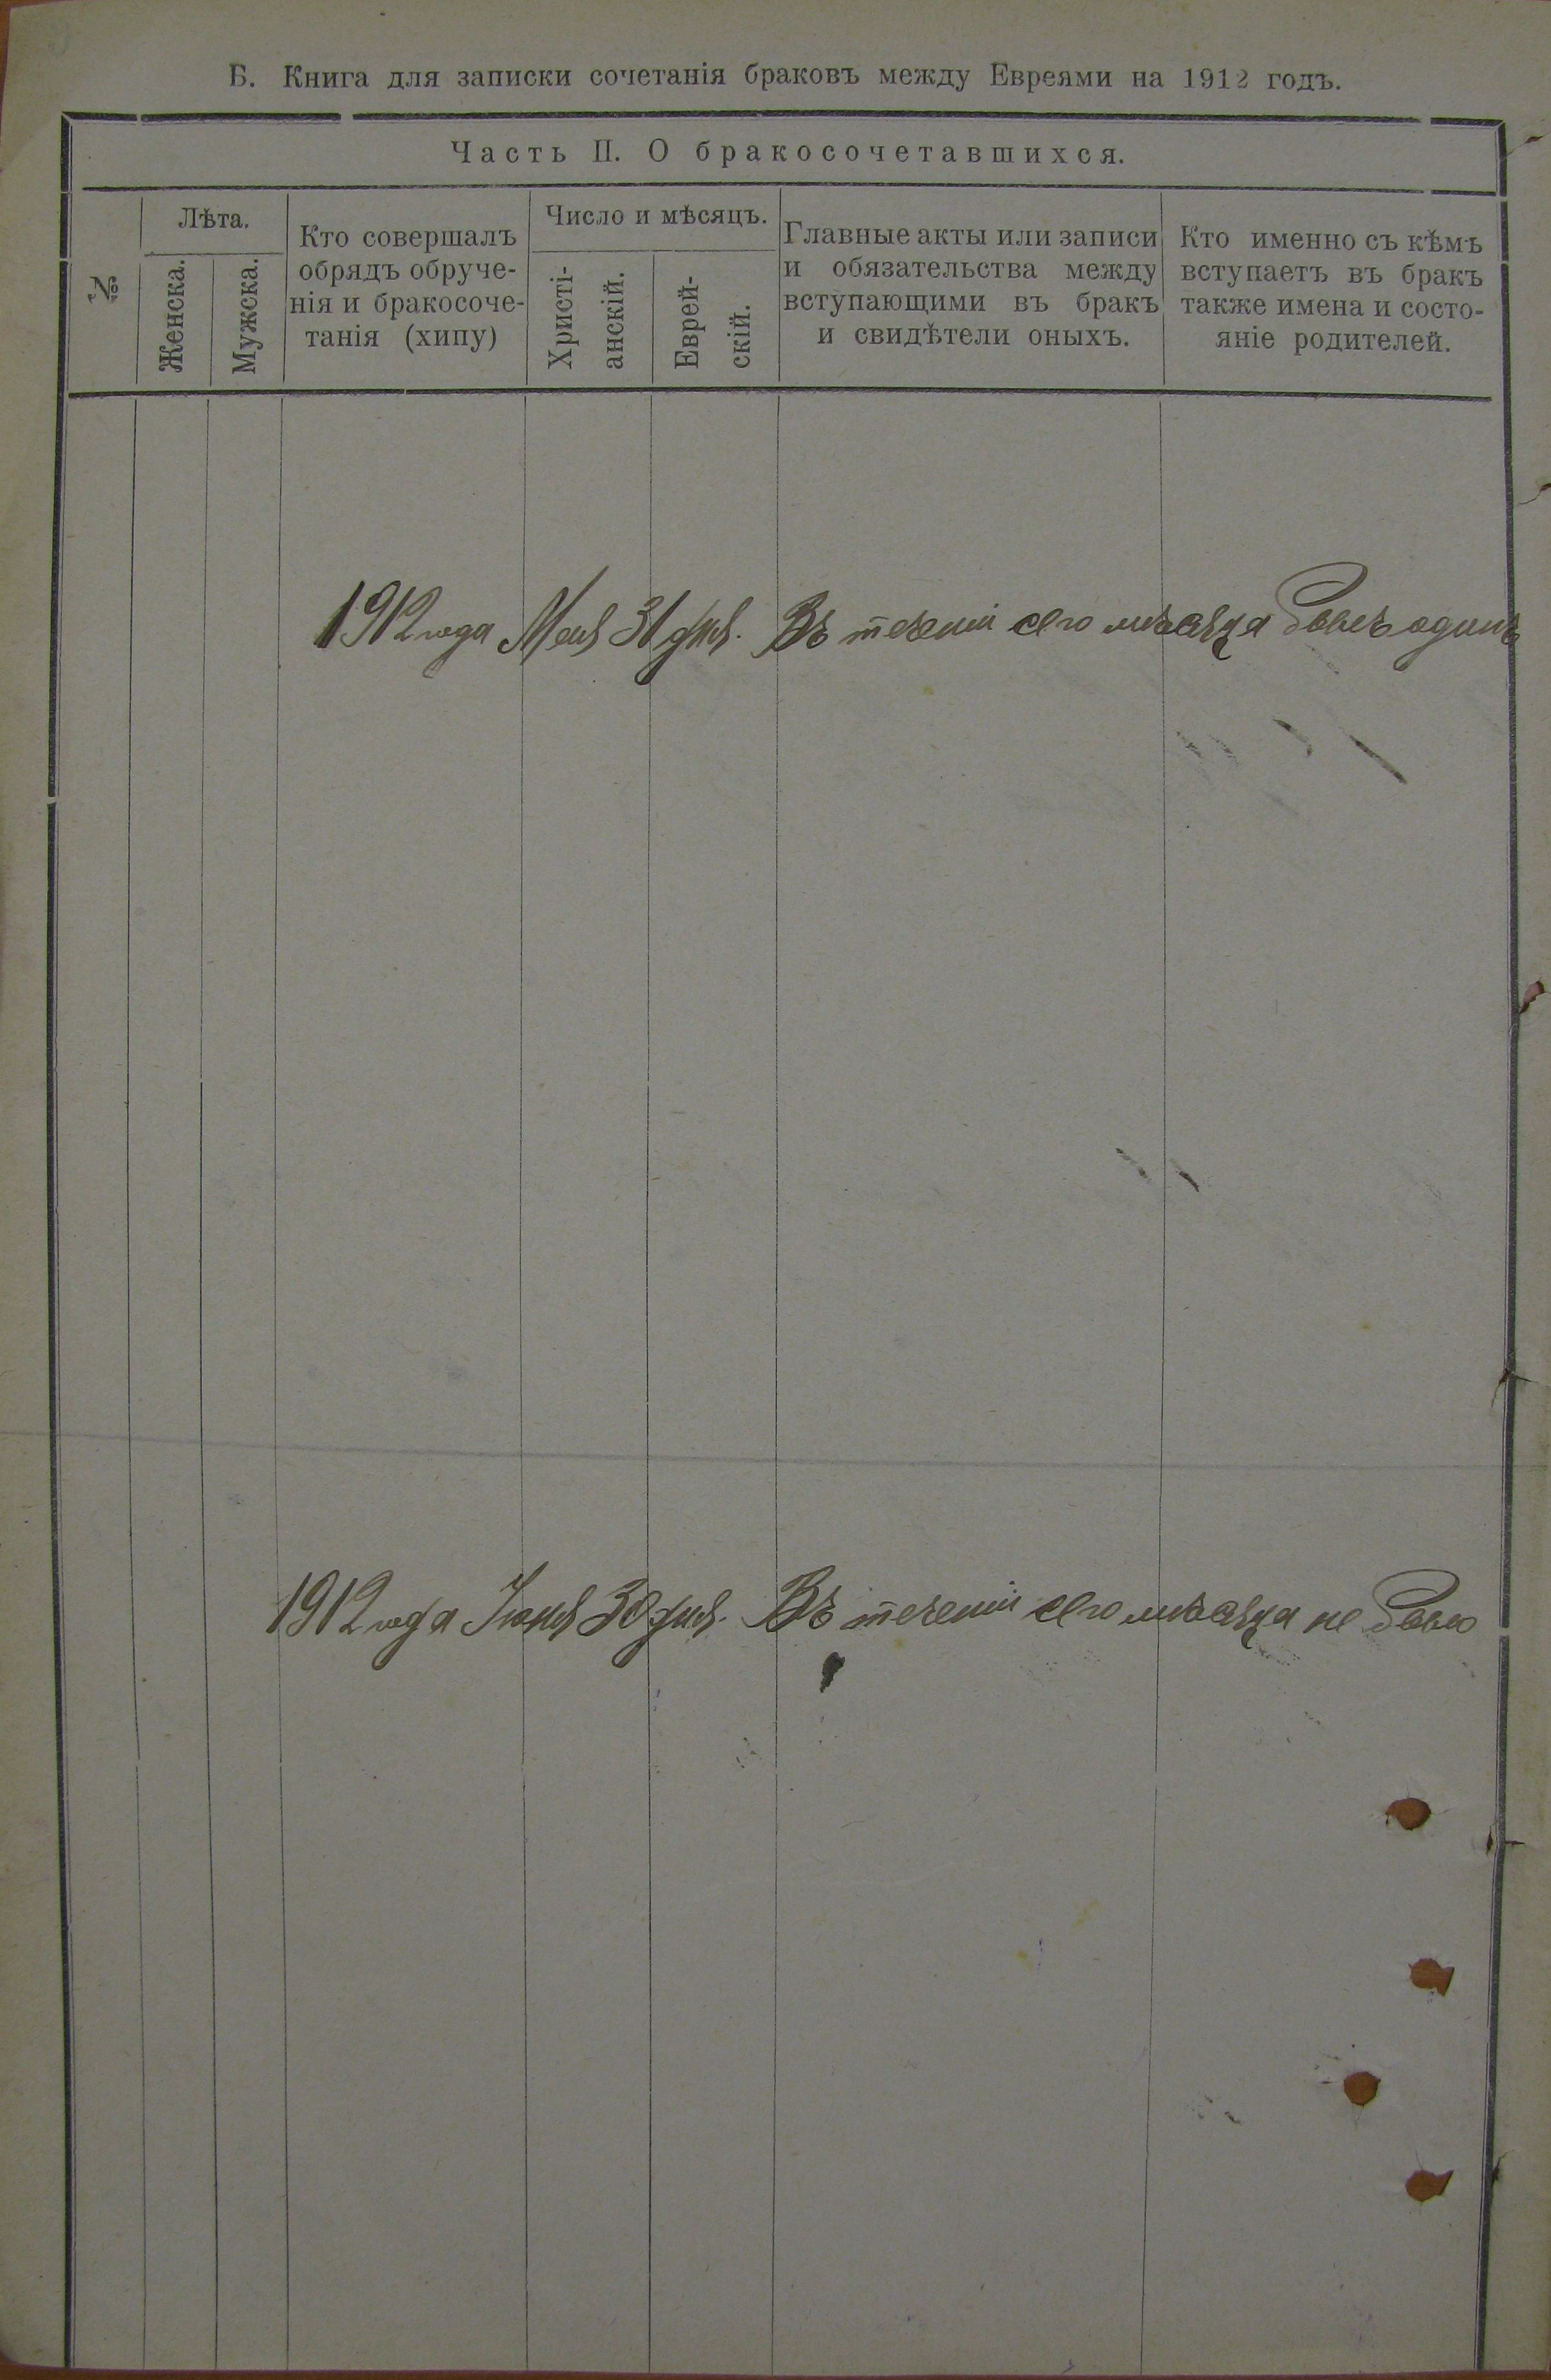 Б. Книга для записки сочетанія браковъ между Евреями на 1912 годъ.
Часть II. О бракосочетавшихся.
№
Лѣта.
Женска.
Мужска.
Кто совершалъ
обрядъ обруче-
нія и бракосоче-
танія (хипу)
Число и мѣсяцъ.
Христі-
анскій.
Еврей-
скій.
Главные акты или записи
и обязательства между
вступающими въ бракъ
и свидѣтели оныхъ.
Кто именно съ кѣмъ
вступаетъ въ бракъ
также имена и состо-
яніе родителей.
1912 года Мая 31 дня. Въ теченіи сего мѣсяца былъ одинъ
1912 года Іюня 30 дня. Въ теченіи сего мѣсяца не было